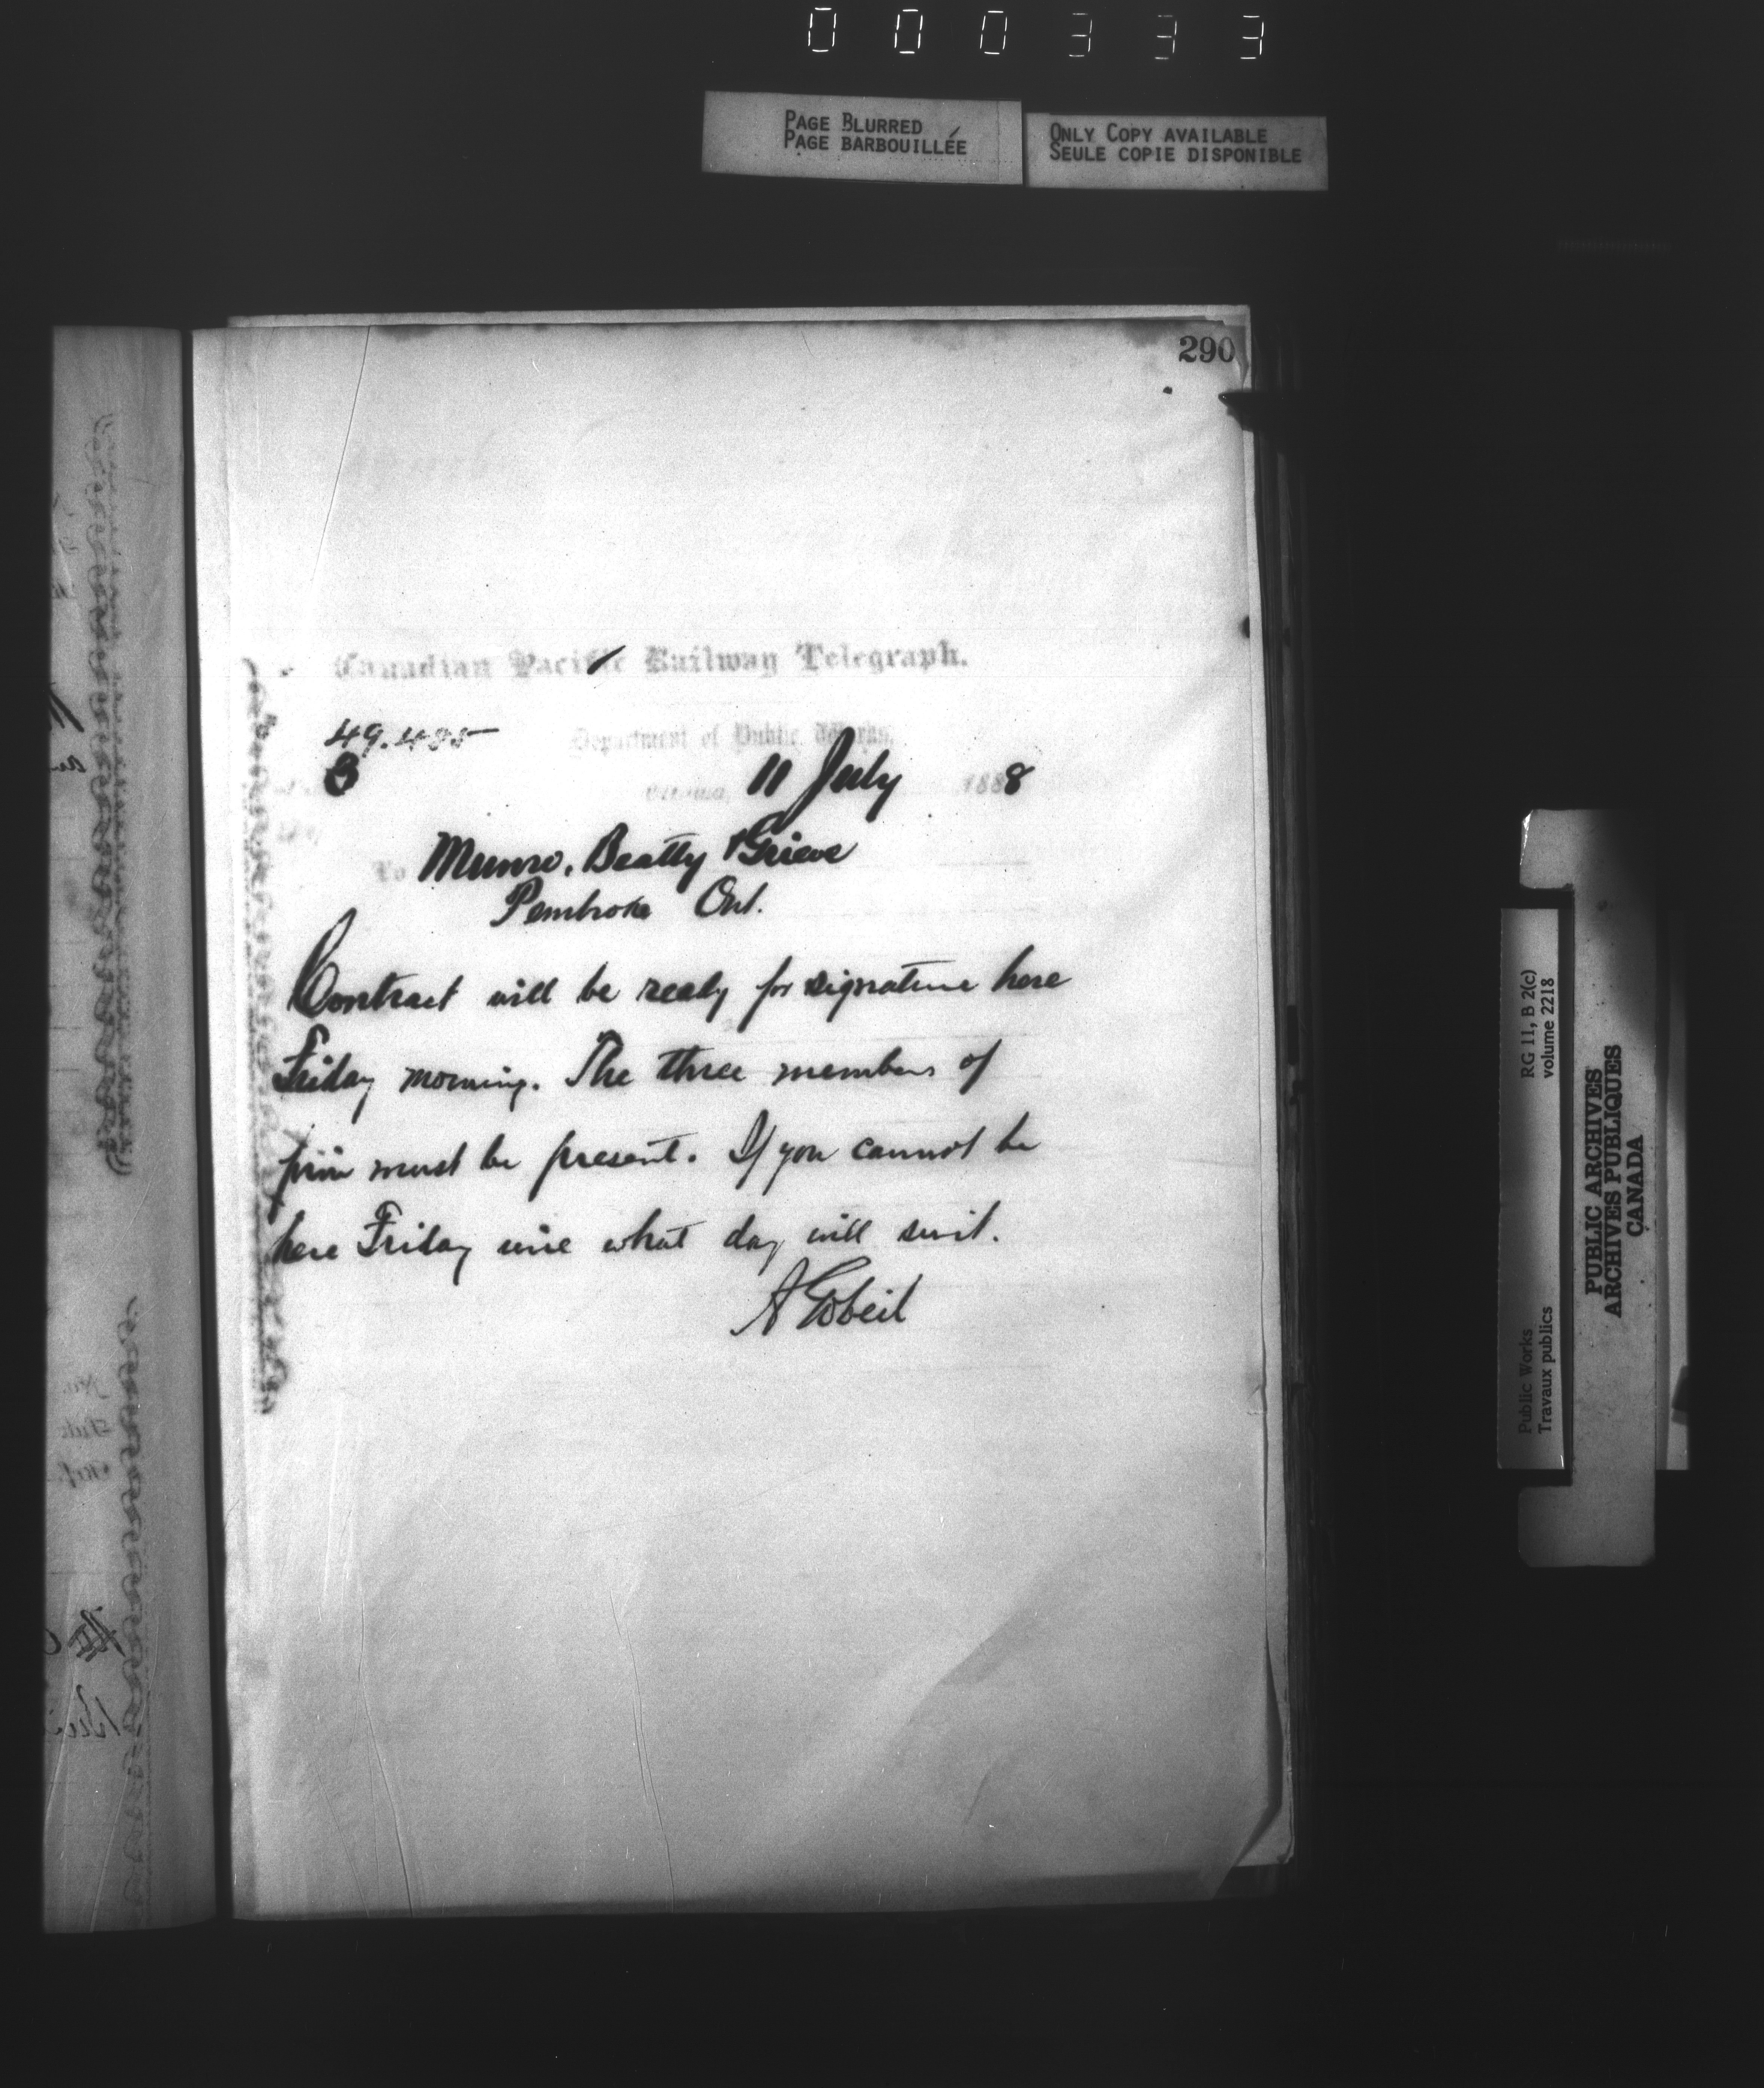 000333
PAGE BLURRED
PAGE BARBOUILLÉE
ONLY COPY AVAILABLE
SEULE COPIE DISPONIBLE
290
Canadian Pacific Railway Telegraph.
49.485
Department of Public Works,
B
Ottawa, 11 July 1888
To Munro, Beatty & Grieve
Pembroke Ont.
Contract will be ready for signature here
Friday morning. The three members of
firm must be present. If you cannot be
here Friday wire what day will suit.
A Gobeil
RG 11, B 2(c)
volume 2218
Public Works
Travaux publics
PUBLIC ARCHIVES
ARCHIVES PUBLIQUES
CANADA